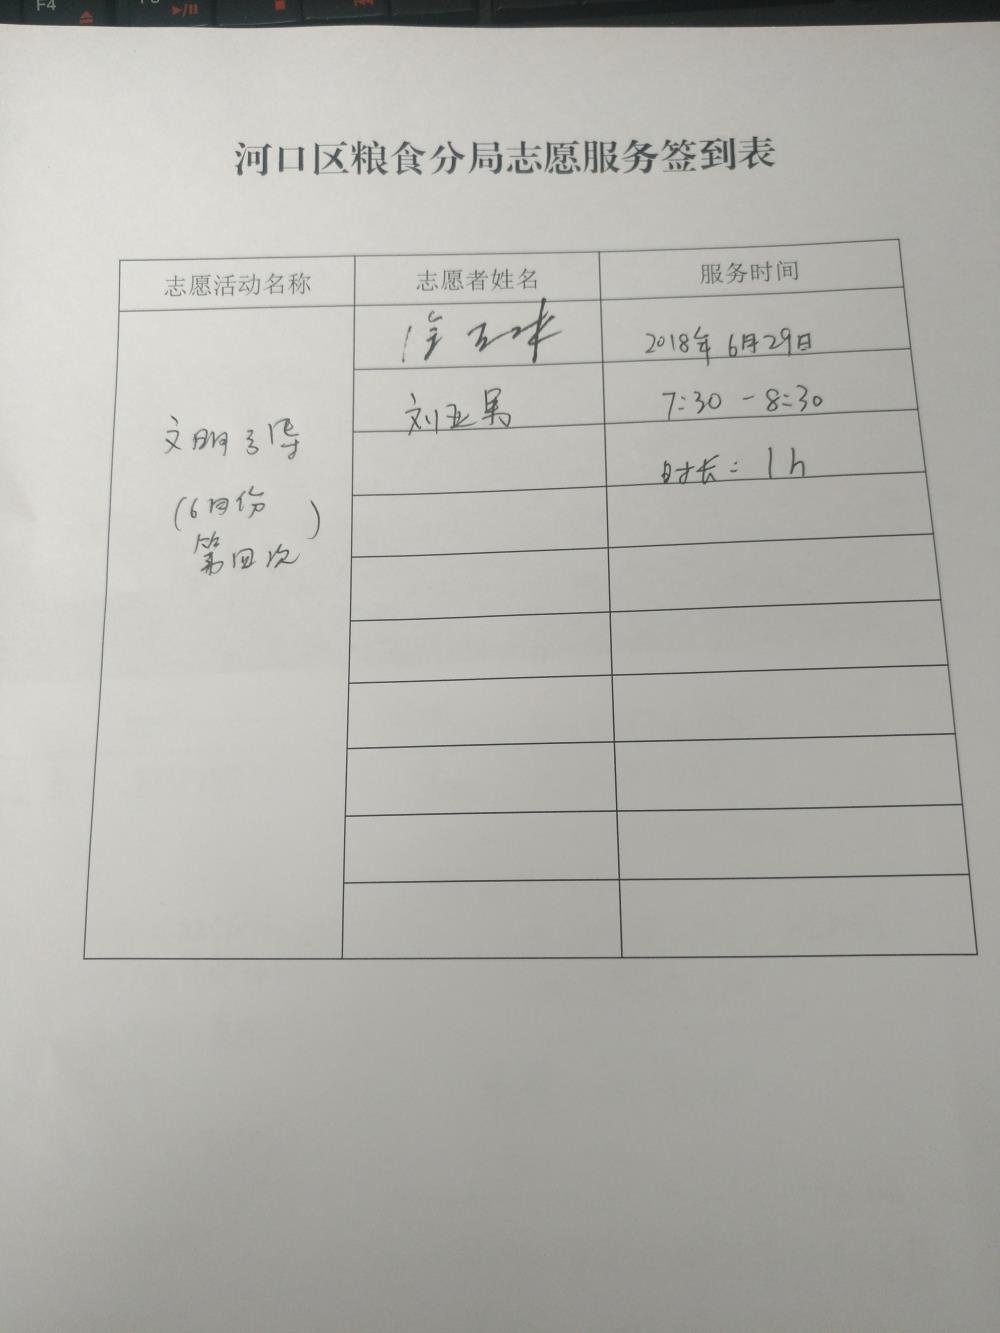 F4
河口区粮食分局志愿服务签到表
志愿活动名称 志愿者姓名 服务时间
2018年6月29日
刘亚男 7:30-8:30
文明引导
时长:1h
(6月份
第四次)